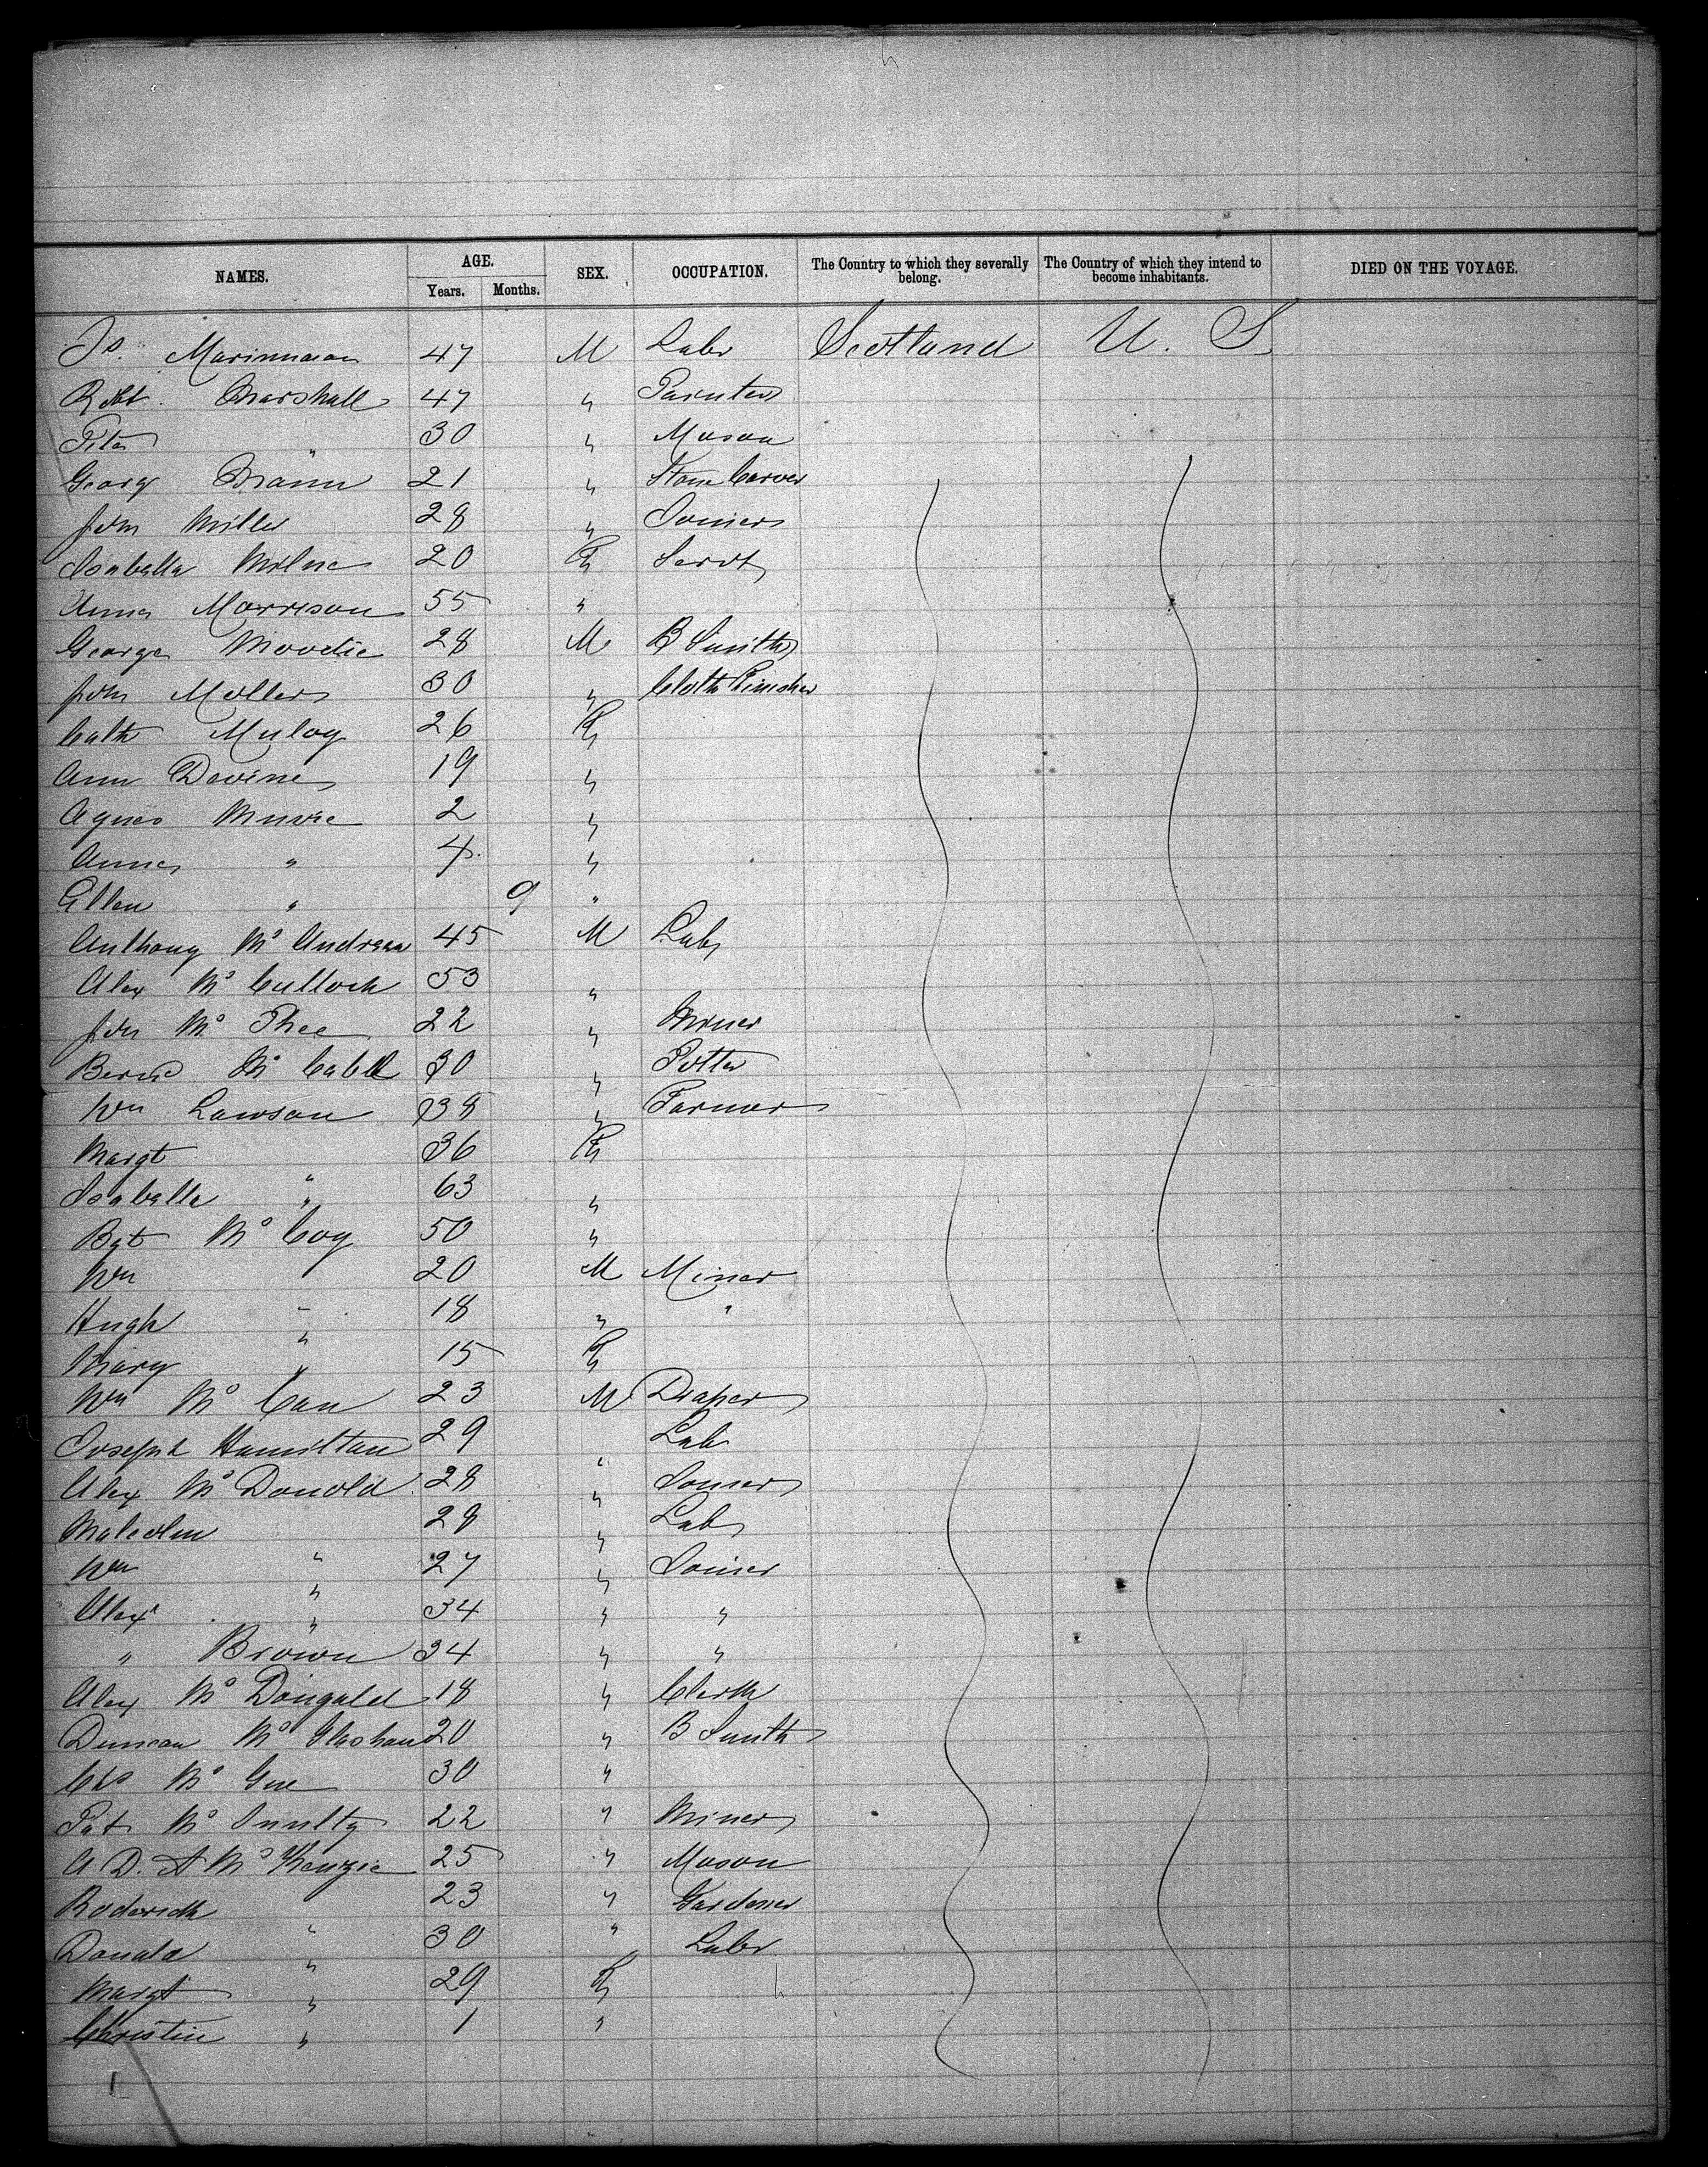 NAMES. AGE. SEX. OCCUPATION. The Country to which they severally belong. The Country of which they intend to become inhabitants. DIED ON THE VOYAGE.
Years. Months.
Js. 47 M Labr Scotland U. S.
Robt. Marshall 47 " Painter
Peter " 30 " Mason
Georg Mann 21 " Stone Carver
John Miller 28 " Joiner
Isabella Milne 20 F Servt
Anna Morrison 55 "
George Moodie 28 M B Smith
John Mellers 30 " Cloth Finisher
Cath Muloy 26 F
Ann Devine 19 "
Agnes Munroe 2 "
Anne " 4 "
Ellen " 9 "
Anthony Mc Andrew 45 M Lab
Alex Mc Culloch 53 "
John Mc Phee 22 " Miner
Bernd Mc Cabe 30 " Potter
Wm Lawson 38 " Farmer
Margt " 36 F
Isabella " 63 "
Bgt Mc Coy 50 "
Wm " 20 M Miner
Hugh " 18 " "
Mary " 15 F
Wm Mc Can 23 M Draper
Joseph Hamilton 29 " Lab
Alex Mc Donold 28 " Joiner
Malcolm " 28 " Lab
Wm " 27 " Joiner
Alexr " 34 " "
" Brown 34 " "
Alex Mc Dougald 18 " Clerk
Duncan Mc Glashan 20 " B Smith
Chs Mc Gee 30 "
Pat Mc Inulty 22 " Miner
A D. A Mc Kenzie 25 " Mason
Roderick " 23 " Gardener
Donald " 30 " Labr
Margt " 29 F
Christin " 1 "